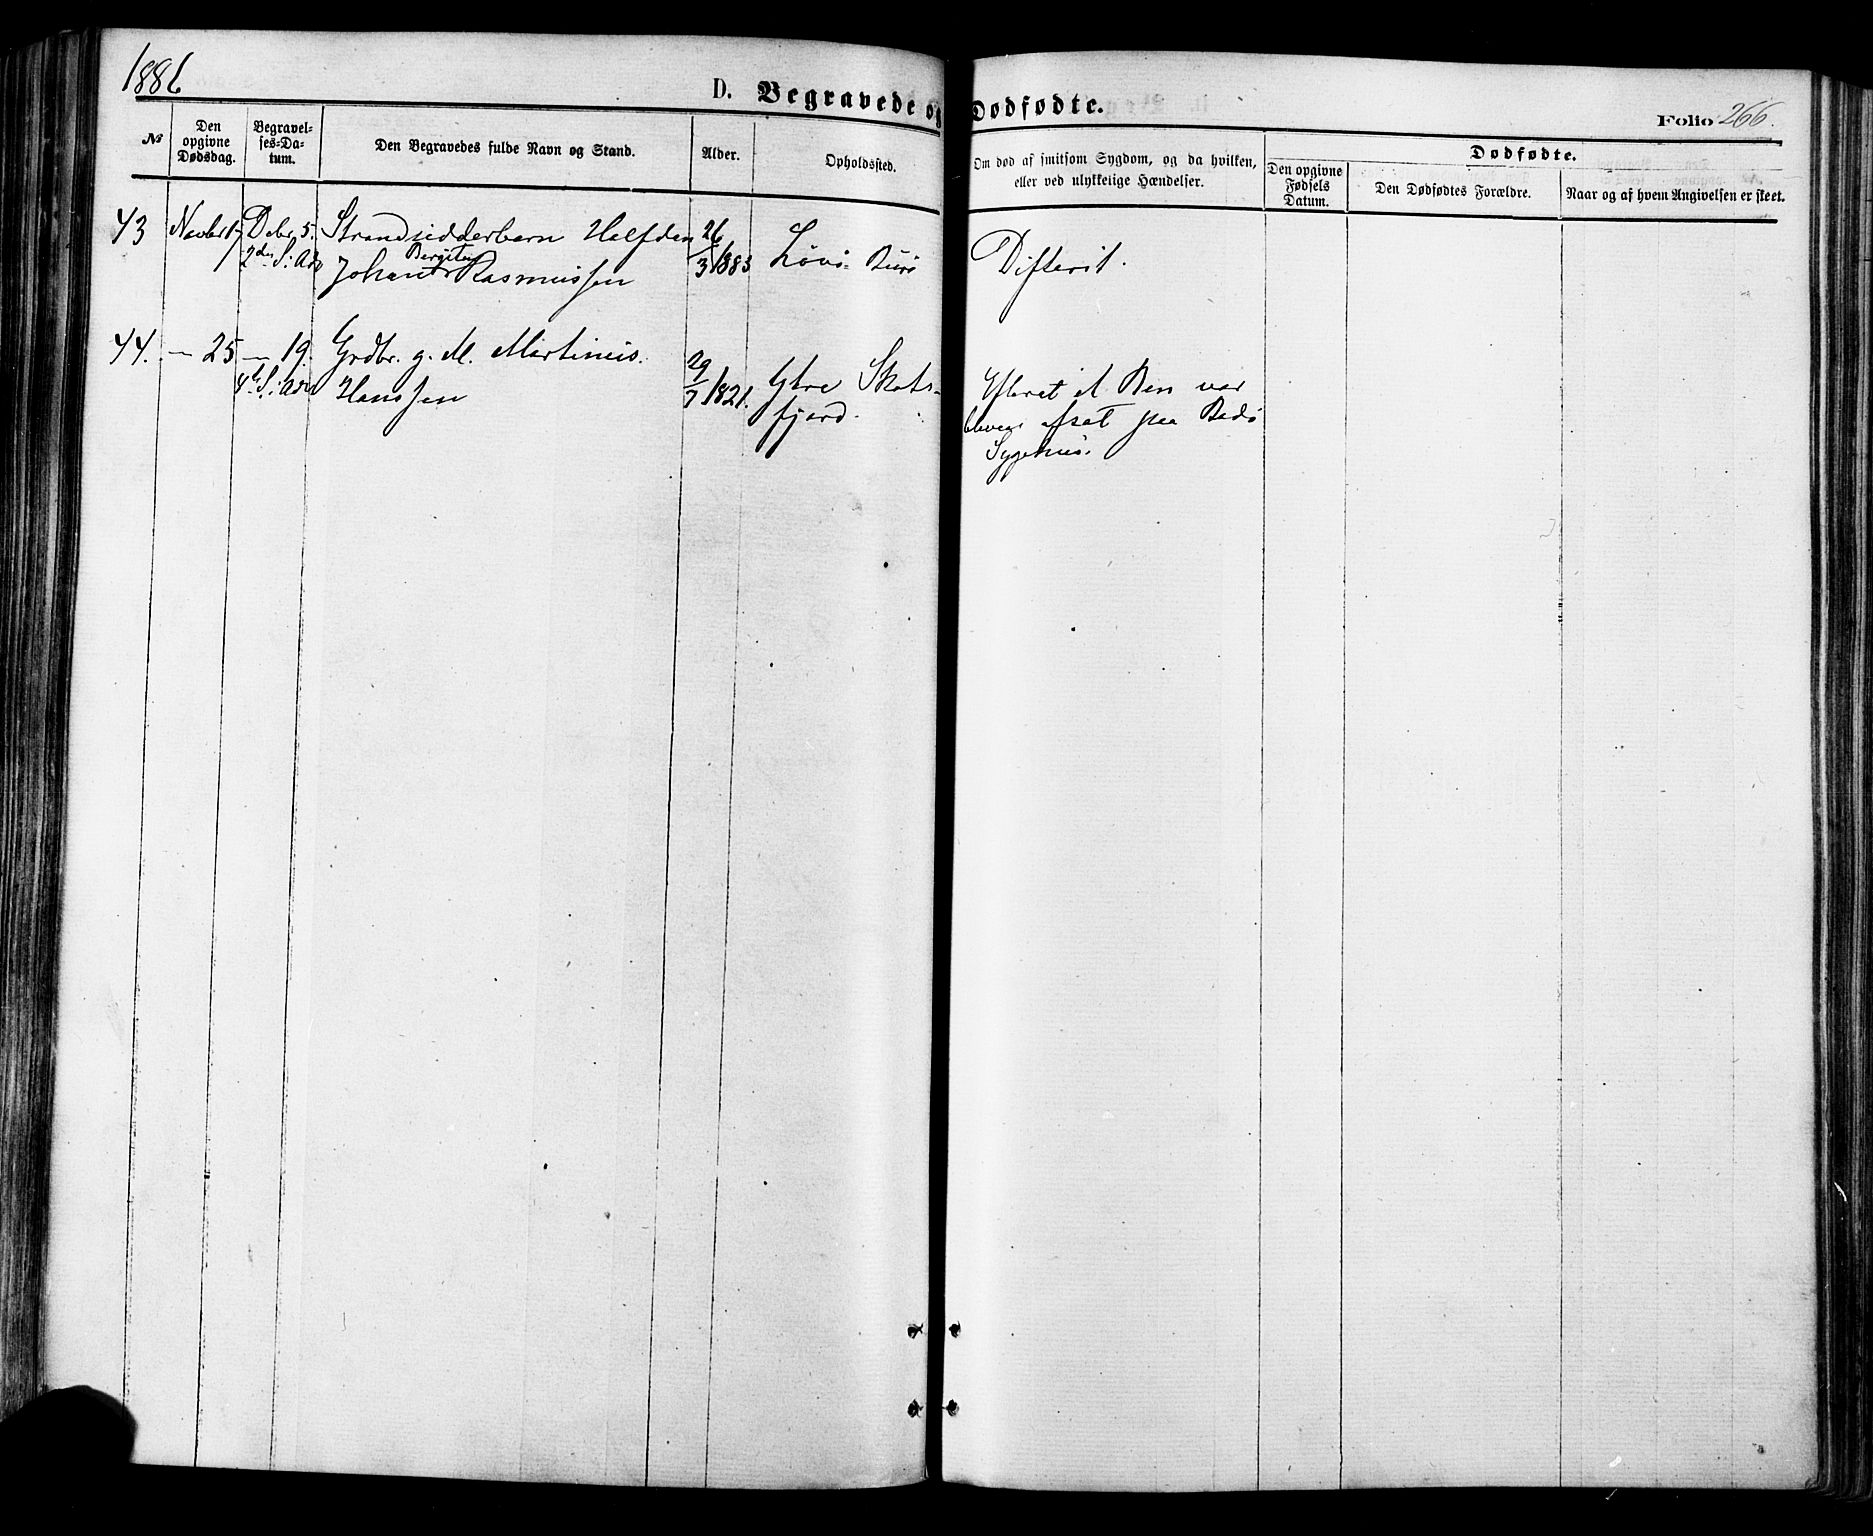 1886
D. Begravede og Dødfødte.
Folio 266.
№
Den opgivne Dødsdag.
Begravelses-Datum.
Den Begravedes fulde Navn og Stand.
Alder.
Opholdssted.
Om død af smitsom Sygdom, og da hvilken, eller ved ulykkelige Hændelser.
Dødfødte.
Den opgivne Fødsels Datum.
Den Dødfødtes Forældre.
Naar og af hvem Angivelsen er skeet.
43 Novbr 17 Debr. 5. Strandsidderbarn Halfdan 26/3 1883 Løvø Burø Difterit.
2den S. i Adv Johan Bergiton Rasmussen
44. — 25 — 19. Grdbr. g. M. Martinus 29/7 1821. Ytre Skots-
4de S. i Adv Hanssen fjord.
Efterat et Ben var
bleven afsat paa Bodø
Sygehus.